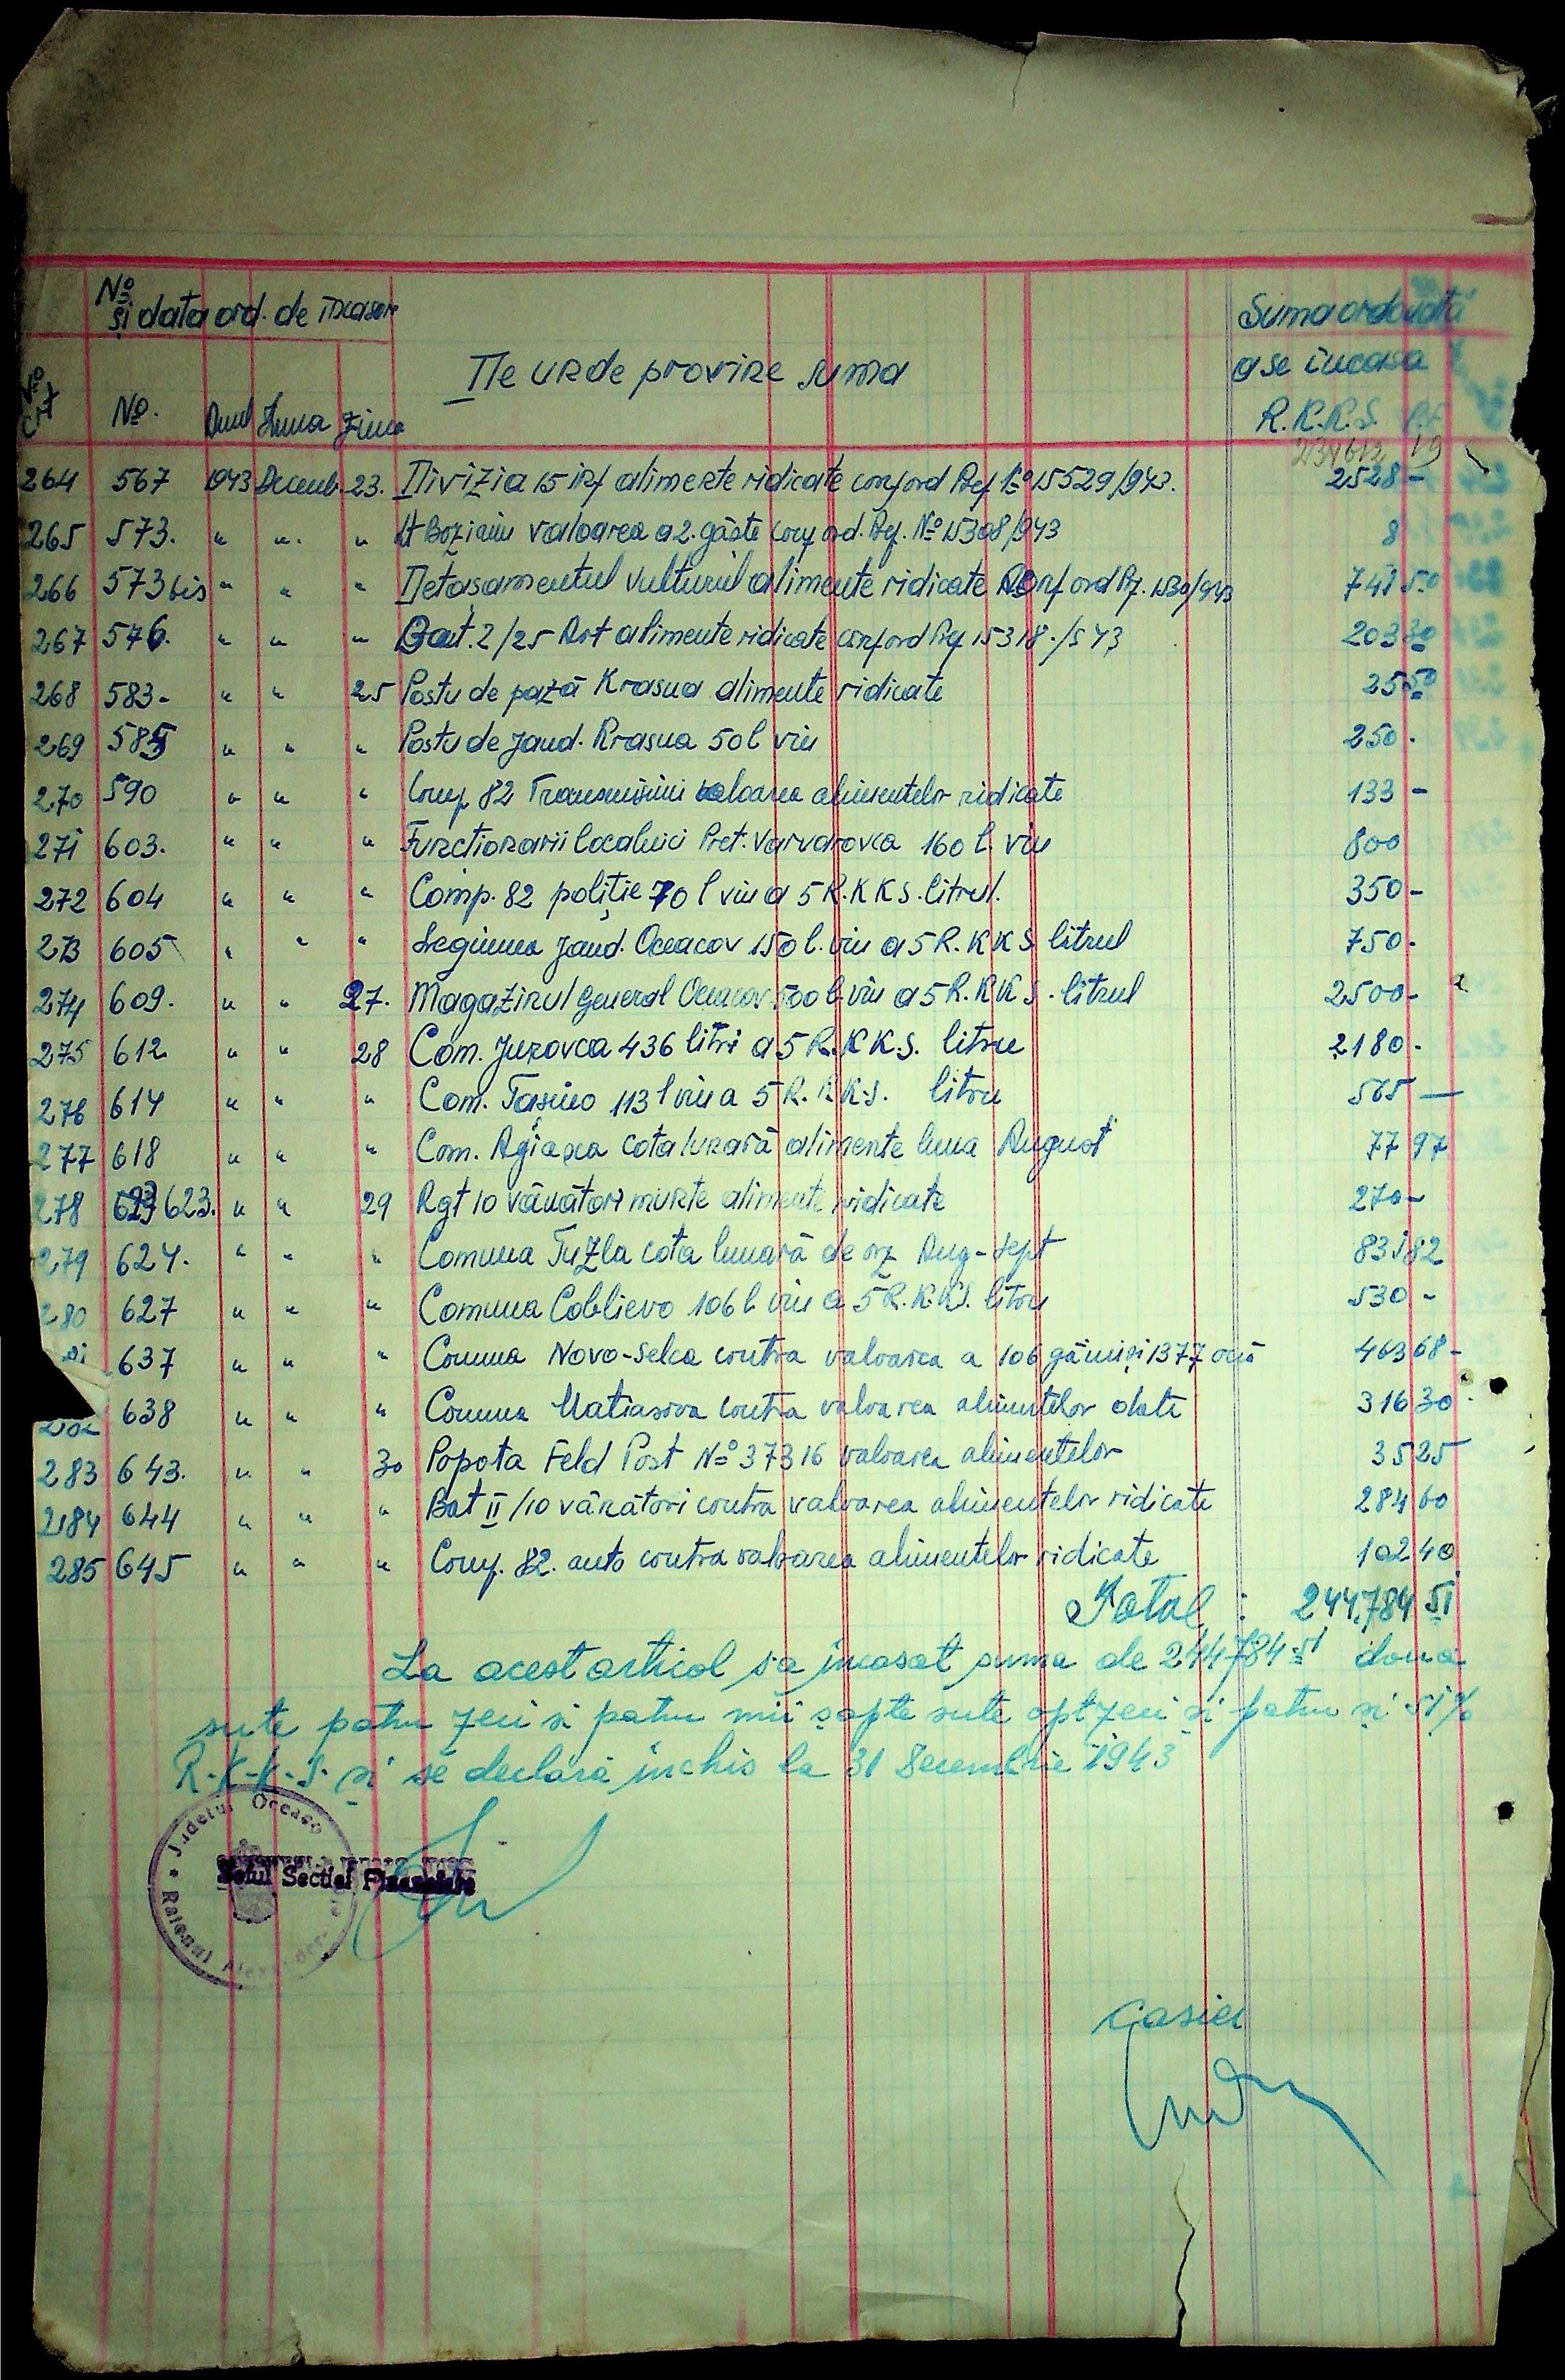 No
și data ord. de incasare
Suma ordonată
a se incasa
De unde provine suma
No crt No. Anul Luna Ziua R.K.K.S. P.F.
234612 19
264 567 1943 Decemb. 23. Divizia 15 Inf alimente ridicate conf ord Pref No 15529/943. 2528 -
265 573. " " " Lt Boziaiu valoarea a 2. gâște conf ord. Pref. No 15308/943 8
266 573 bis " " " Detașamentul Vulturul alimente ridicate conf ord Pf. 1530/943 741 50
267 576. " " " Bat. 2/25 Art alimente ridicate conf ord Pref 15318./943 203 30
268 583- " " 25 Postu de pază Krasna alimente ridicate 25 50
269 585 " " " Postu de jand. Krasna 50 l vin 250 -
270 590 " " " Comp 82 Transmisiuni valoarea alimentelor ridicate 133 -
271 603. " " " Functionarii localnici Pret. Varvarovca 160 l. vin 800
272 604 " " " Comp. 82 poliție 70 l vin a 5 R.K.K.S. litrul. 350 -
273 605 " " " Legiunea Jand. Oceacov 150 l. vin a 5 R.K.K.S litrul 750 -
274 609. " " 27. Magazinul General Oceacov 500 l. vin a 5 R.K.K.S. litrul 2500 -
275 612 " " 28 Com. Jurovca 436 litri a 5 R.K.K.S. litru 2180 -
276 614 " " " Com. Tașino 113 l vin a 5 R.K.K.S. litru 565 -
277 618 " " " Com. Agiasca cota lunară alimente luna August 77 97
278 623. " " 29 Rgt 10 vânători munte alimente ridicate 270 -
279 624. " " " Comuna Tuzla cota lunară de orz Aug-Sept 83 82
280 627 " " " Comuna Coblievo 106 l vin a 5 R.K.K.S. litru 530 -
637 " " " Comuna Novo-Selca contra valoarea a 106 găini și 1377 ouă 463 68 -
638 " " " Comuna Matiasova contra valoarea alimentelor date 316 30
283 643. " " 30 Popota Feld Post No 37316 valoarea alimentelor 35 25
284 644 " " " Bat II/10 vânători contra valoarea alimentelor ridicate 284 60
285 645 " " " Comp. 82. auto contra valoarea alimentelor ridicate 102 40
Total : 244.784 51
La acest articol s'a incasat suma de 244784 51 doua
sute patru zeci si patru mii șapte sute opt zeci și patru și 51%
R-K-K-S- și se declară inchis la 31 Decembrie 1943
Judetul Oceacov
Raionul
Șeful Sectiei Financiare
Casier